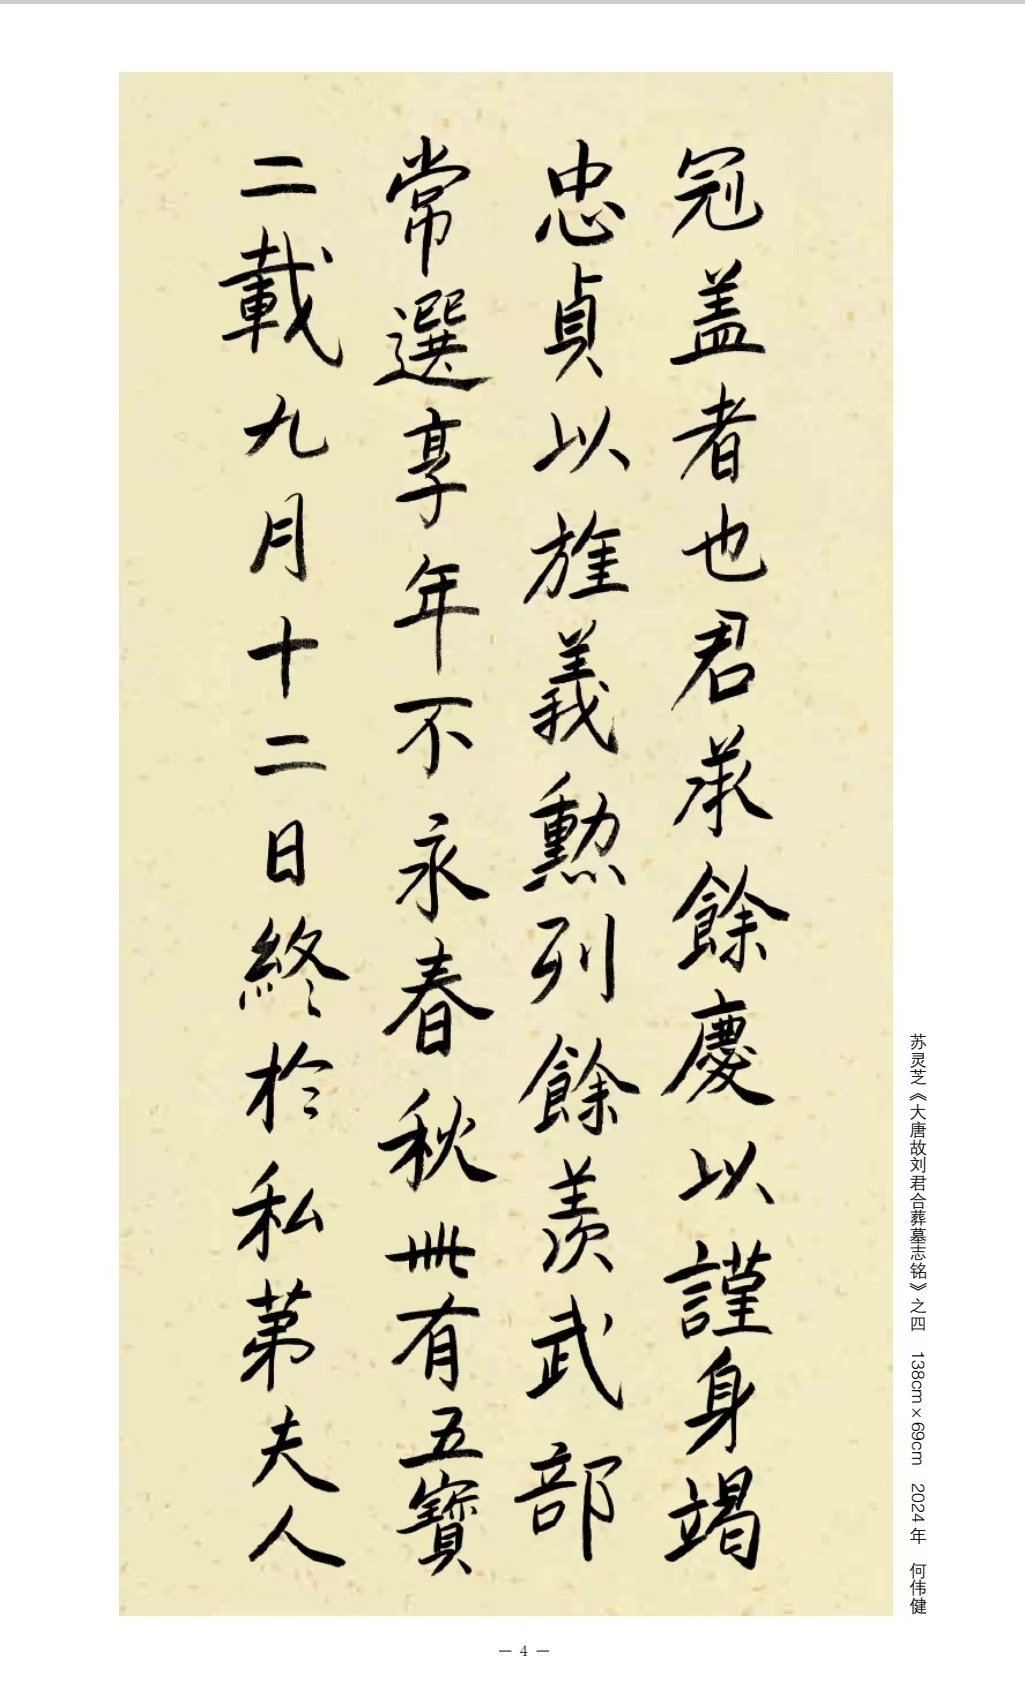 冠盖者也君承餘慶以謹身竭
忠貞以旌義勲列餘羨武部
常選享年不永春秋卌有五寳
二載九月十二日終於私第夫人
苏灵芝《大唐故刘君合葬墓志铭》之四 138cm×69cm 2024年 何伟健
— 4 —